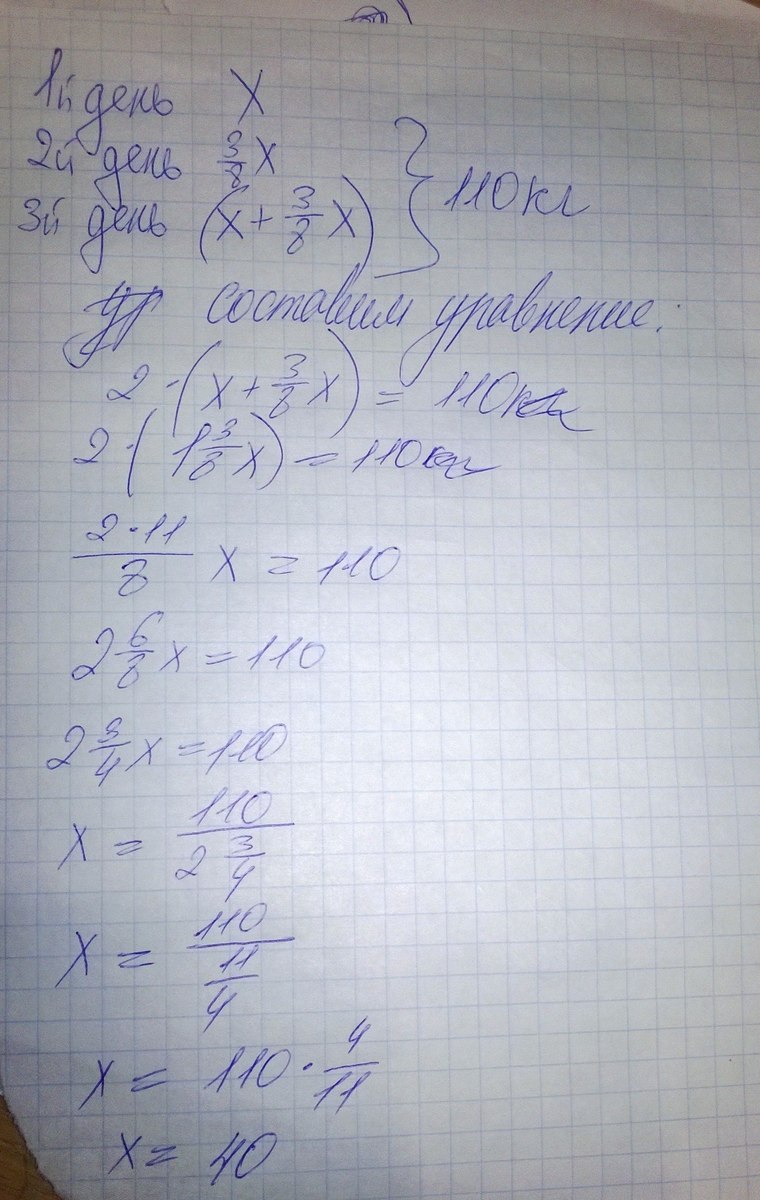 1й день X
2й день 3/8 X
3й день (X + 3/8 X) } 110 кг
составим уравнение:
2 · (X + 3/8 X) = 110 кг
2 · (1 3/8 X) = 110 кг
2·11/8 X = 110
2 6/8 X = 110
2 3/4 X = 110
X = 110/(2 3/4)
X = 110/(11/4)
X = 110 · 4/11
X = 40